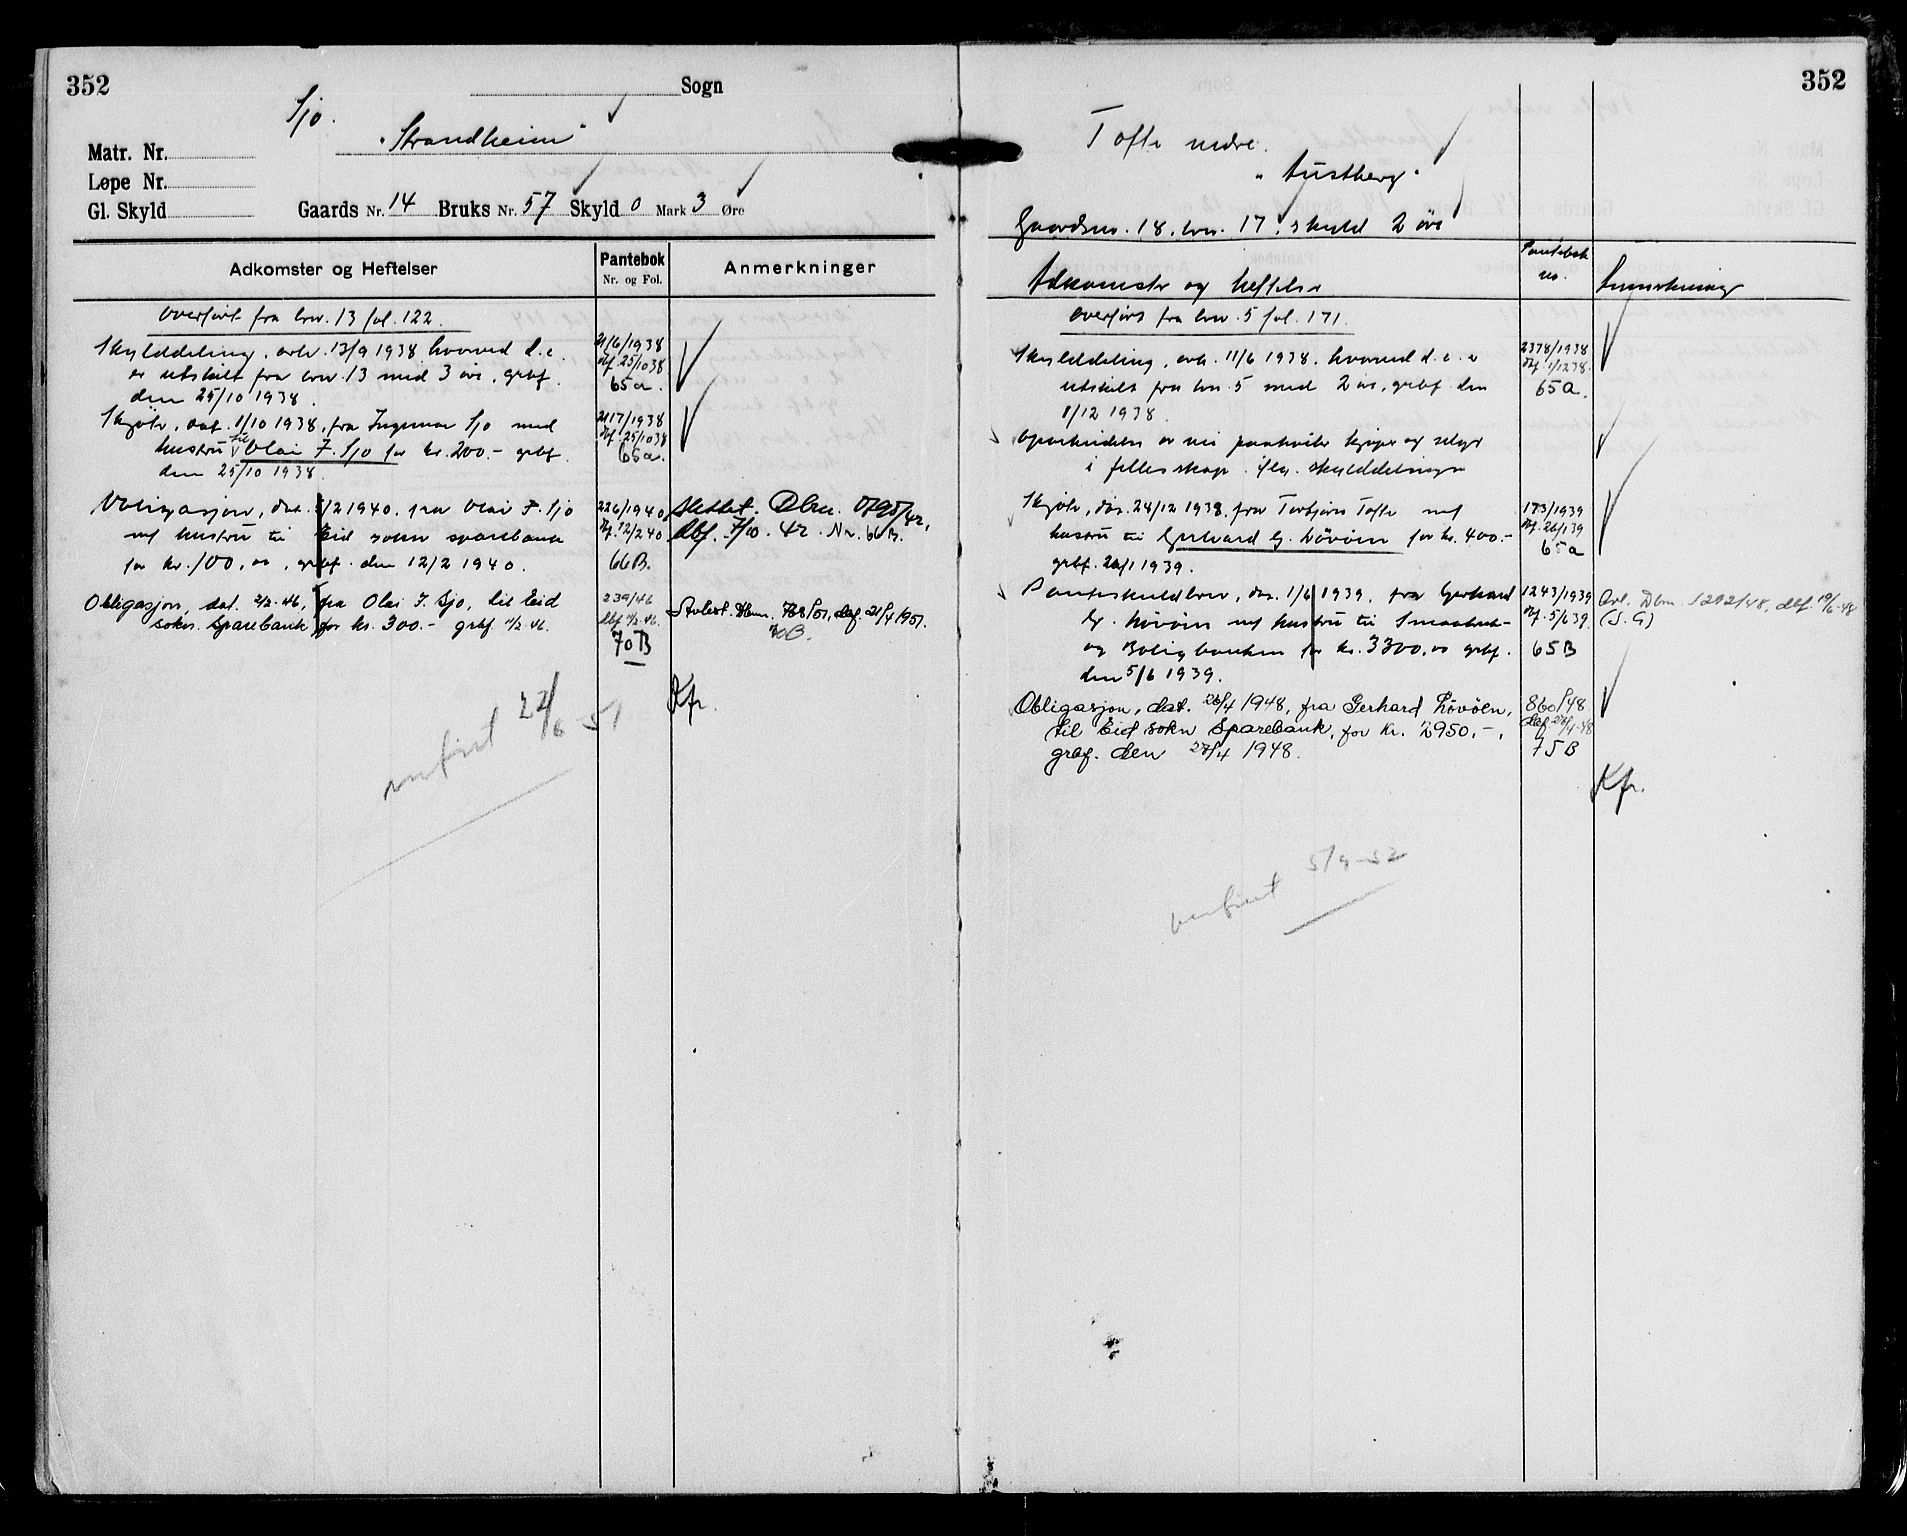 352
Sogn
Sjo.
"Strandheim"
Matr. Nr.
Løpe Nr.
Gl. Skyld
Gaards Nr. 14 Bruks Nr. 57 Skyld 0 Mark 3 Øre
Adkomster og Heftelser
Pantebok
Nr. og Fol.
Anmerkninger
Overført fra brnr. 13 fol. 122.
Skylddeling, avh. 13/9 1938 hvorved d.e.
er utskilt fra brnr. 13 med 3 øre, grbf.
den 25/10 1938.
/1938
Dbf. 25/10 38
65a.
Skjøte, dat. 1/10 1938, fra Ingemar Sjo med
hustru til Olai F. Sjo for kr. 200.- grbf.
den 25/10 1938.
2117/1938
Dbf. 25/10 38
65a.
Obligasjon, dat. /2 1940, fra Olai F. Sjo
m/ hustru til Eid sokn sparebank
for kr. 100,00, grbf. den 12/2 1940.
226/1940
Dbf. 12/2 40
66B.
Slettet. Dbnr. /42,
Dbf. 7/10. 42. Nr. 66B.
Obligasjon, dat. 2/2-46, fra Olai F. Sjo, til Eid
sokn Sparebank for kr. 300.- grbf. 11/2 46.
239/46
Dbf. 11/2-46.
70B
Avlest. Dbnr. 788/51, dbf. 21/4 1951.
70B.
Kfr.
overført 22/6 51
352
Tofte nedre.
"Austberg".
Gaardsnr. 18, brnr. 17. skyld 2 øre
Adkomster og heftelser
Pantebok
nr.
Anmerkninger
Overført fra brnr. 5 fol. 171.
Skylddeling, avh. 11/6 1938, hvorved d.e. er
utskilt fra bnr. 5 med 2 øre, grbf. den
1/12 1938.
2378/1938
Dbf. 1/12 38.
65a.
Oparbeidelse av vei paahviler kjøper og selger
i fellesskap iflg. skylddelingen
Skjøte, dat. 24/12 1938, fra Torbjørn Tofte m/
hustru til Gerhard G. Løvøien for kr. 400.-
grbf. 26/1 1939.
183/1939
Dbf. 26/1 39
65a
Panteskuldbrev, dat. 1/6 1939, fra Gerhard
G. Løvøien m/ hustru til Smaabruk-
og Boligbanken for kr. 3300,00 grbf.
den 5/6 1939.
1243/1939
Dbf. 5/6 39.
65B
Avl. Dbnr. 1292/48, dbf. 19/6-48
(S.G)
Obligasjon, dat. 26/4 1948, fra Gerhard Løvöen,
til Eid sokn Sparebank, for kr. 2950,-,
grbf. den 28/4 1948.
860/48
Dbf. 28/4-48
75B
Kfr.
overført 5/9-52